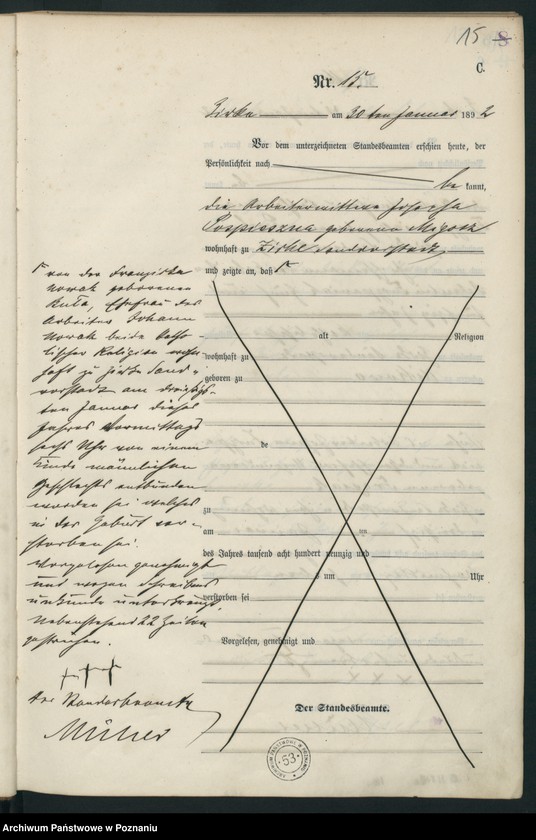 15 8
C.
Nr. 15.
Zirke am 30 ten Januar 1892
Vor dem unterzeichneten Standesbeamten erschien heute, der
Persönlichkeit nach
be kannt,
die Arbeiterwittwe Josepha
geborene
wohnhaft zu Zirke Sandvorstadt
und zeigte an, daß
von der Franziska
Nowak geborenen
Kuta, Ehefrau des
Arbeiter Johann
Nowak beide katho-
lischer Religion wohn
haft zu Zirke Sand-
vorstadt am dreißigs-
ten Januar dieses
Jahres Vormittags
sechs Uhr von einem
Kinde männlichen
Geschlechts entbunden
worden sei welches
in der Geburt ver-
storben sei.
Vorgelesen genehmigt
und wegen Schreibens
unkunde unterkreuzt.
Nebenstehend 22 Zeilen
gestrichen.
+++
Der Standesbeamte
Müller
alt Religion
wohnhaft zu
geboren zu
de
zu
am um
des Jahres tausend acht hundert neunzig und
um Uhr
verstorben sei
Vorgelesen, genehmigt und
Der Standesbeamte.
ARCHIWUM PAŃSTWOWE W POZNANIU
53
Archiwum Państwowe w Poznaniu